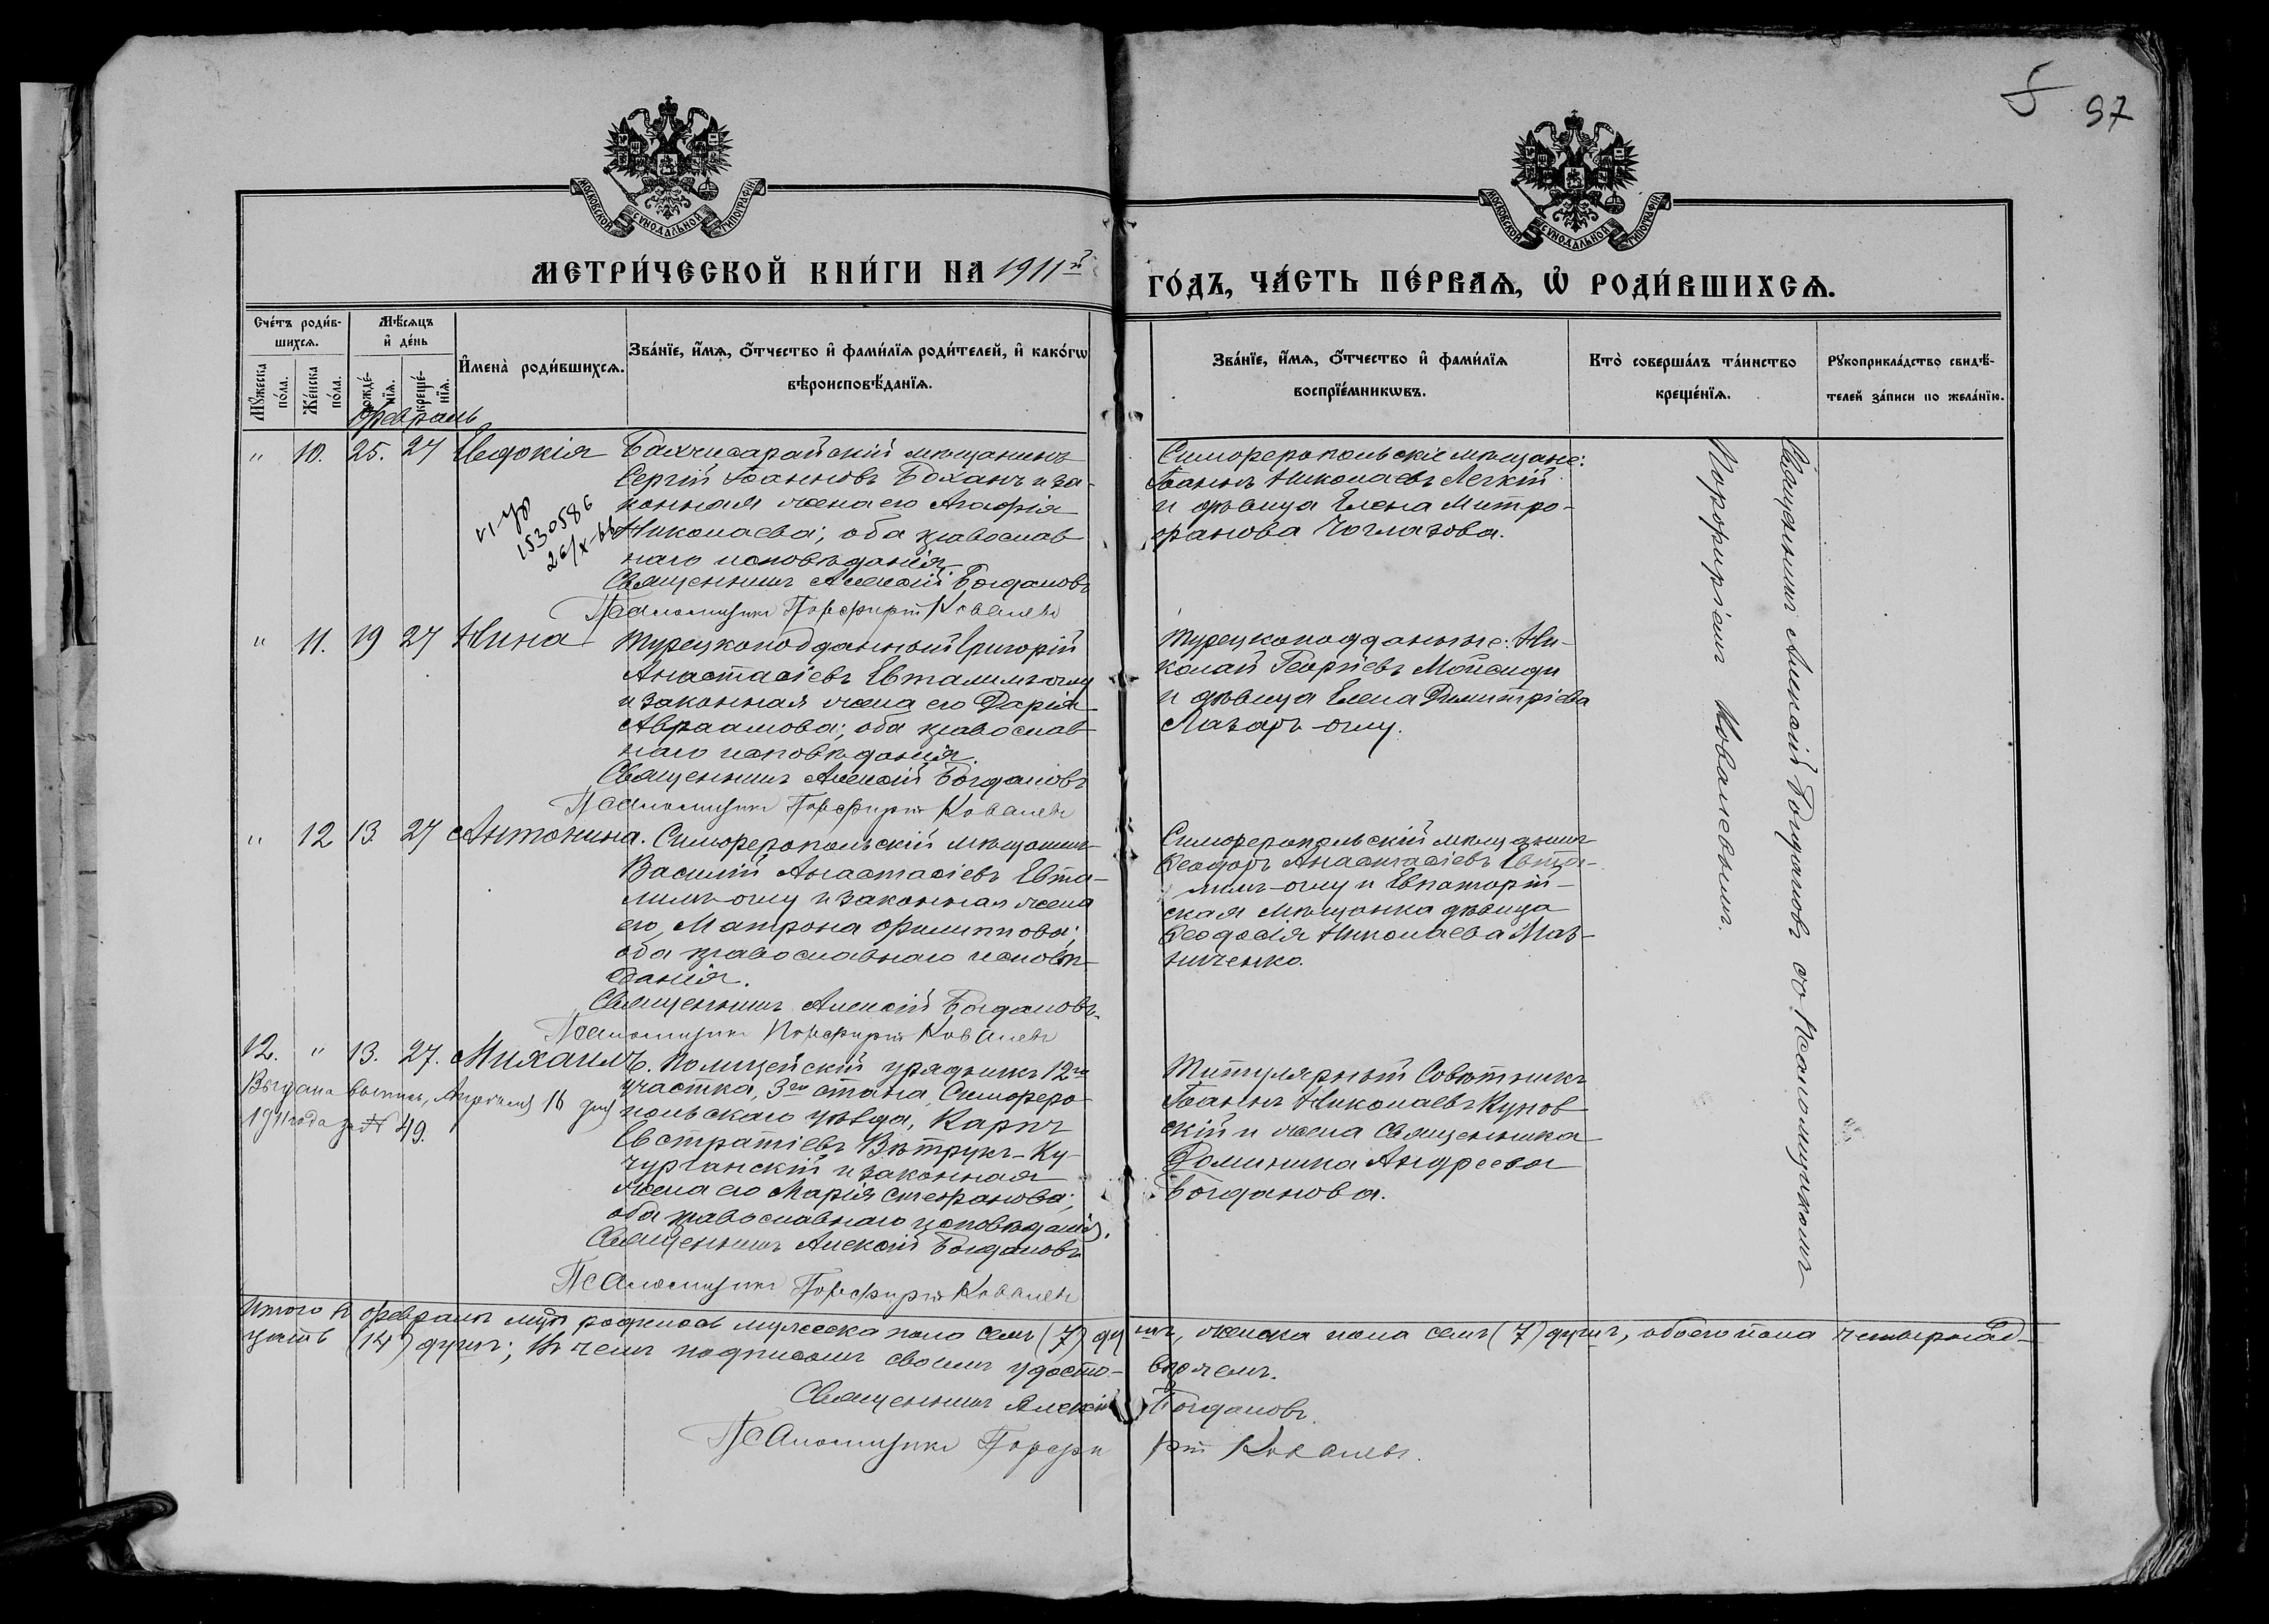 5 97
МОСКОВСКОЙ СѴНОДАЛЬНОЙ ТИПОГРАФІИ
МОСКОВСКОЙ СѴНОДАЛЬНОЙ ТИПОГРАФІИ
МЕТРИ́ЧЕСКОЙ КНИ́ГИ НА 1911й
ГО́ДЪ, ЧА́СТЬ ПЕ́РВАѦ, Ѡ҆ РОДИ́ВШИХСѦ.
Сче́тъ роди́в-
шихсѧ.
Мꙋ́жеска по́ла.
Же́нска по́ла.
Мѣ́сѧцъ
и҆ де́нь
рожде́-
нїѧ.
креще́-
нїѧ.
И҆мена̀ роди́вшихсѧ.
Зва́нїе, и҆́мѧ, ѻ҆́тчество и҆ фами́лїѧ роди́телей, и҆ како́гѡ
вѣроисповѣ́данїѧ.
Зва́нїе, и҆́мѧ, ѻ҆́тчество и҆ фами́лїѧ
воспрїе́мникѡвъ.
Кто̀ соверша́лъ та́инство
креще́нїѧ.
Рꙋкоприкла́дство свидѣ́-
телей за́писи по жела́нїю.
Февраль
" 10. 25. 27 Евдокія
Бахчисарайскій мѣщанинъ
Сергій Іоанновъ Боханъ и за-
конная жена его Агафія
Николаева; оба православ
наго исповѣданія.
Священникъ Алексій Богдановъ
Псаломщикъ Порфирій Ковалевъ
1530586
26/X-66
Симферопольскіе мѣщане:
Іоаннъ Николаевъ Легкій
и дѣвица Елена Митро-
фанова Чоглазова.
" 11. 19 27 Нина
Турецкоподданный Григорій
Анастасіевъ Евталимъ-оглу
и законная жена его Дарія
Авраамова; оба православ
наго исповѣданія.
Священникъ Алексій Богдановъ
Псаломщикъ Порфирій Ковалевъ
Турецкоподданные: Ни-
колай Георгіевъ Мойсиди
и дѣвица Елена Димитріева
Лазарь-оглу.
" 12 13. 27 Антонина.
Симферопольскій мѣщанинъ
Василій Анастасіевъ Евта-
лимъ-оглу и законная жена
его Матрона Филиппова;
оба православнаго исповѣ-
данія.
Священникъ Алексій Богдановъ.
Псаломщикъ Порфирій Ковалевъ
Симферопольскій мѣщанинъ
Ѳеодоръ Анастасіевъ Евта-
лимъ-оглу и Евпаторій-
ская мѣщанка дѣвица
Ѳеодосія Николаева
12. " 13. 27. Михаилъ.
Выдана выпись, Апрѣля 16 дня
1911 года за № 49.
Полицейскій урядникъ 12го
участка, 3го стана, Симферо-
польскаго уѣзда, Карпъ
Евстратіевъ Вѣтрукъ-Ку-
чурганскій и законная
жена его Марія Стефанова;
оба православнаго исповѣданія.
Священникъ Алексій Богдановъ
Псаломщикъ Порфирій Ковалевъ
Титулярный Совѣтникъ
Іоаннъ Николаевъ Кунов
скій и жена священника
Домникія Андреева
Богданова.
Священникъ Алексій Богдановъ съ Псаломщикомъ
Порфиріемъ Ковалевымъ.
Итого въ февралѣ мцѣ родилось мужеска пола семь (7) душъ, женска пола семь (7) душъ, обоего пола четырнад-
цать (14) душъ; въ чемъ подписомъ своимъ удосто-вѣряемъ.
Священникъ Алексій Богдановъ.
Псаломщикъ Порфирій Ковалевъ.